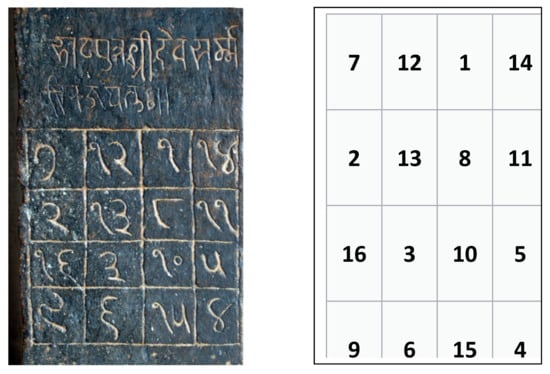 पुत्रश्रीदेवसर्म्म
७ १२ १ १४
२ १३ ८ ११
१६ ३ १० ५
९ ६ १५ ४
7 12 1 14
2 13 8 11
16 3 10 5
9 6 15 4